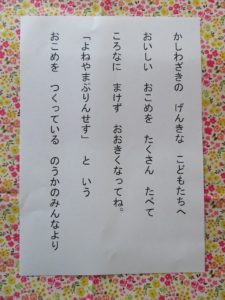 かしわざきの げんきな こどもたちへ
おいしい おこめを たくさん たべて
ころなに まけず おおきくなってね。
「よねやまぷりんせす」 と いう
おこめを つくっている のうかのみんなより